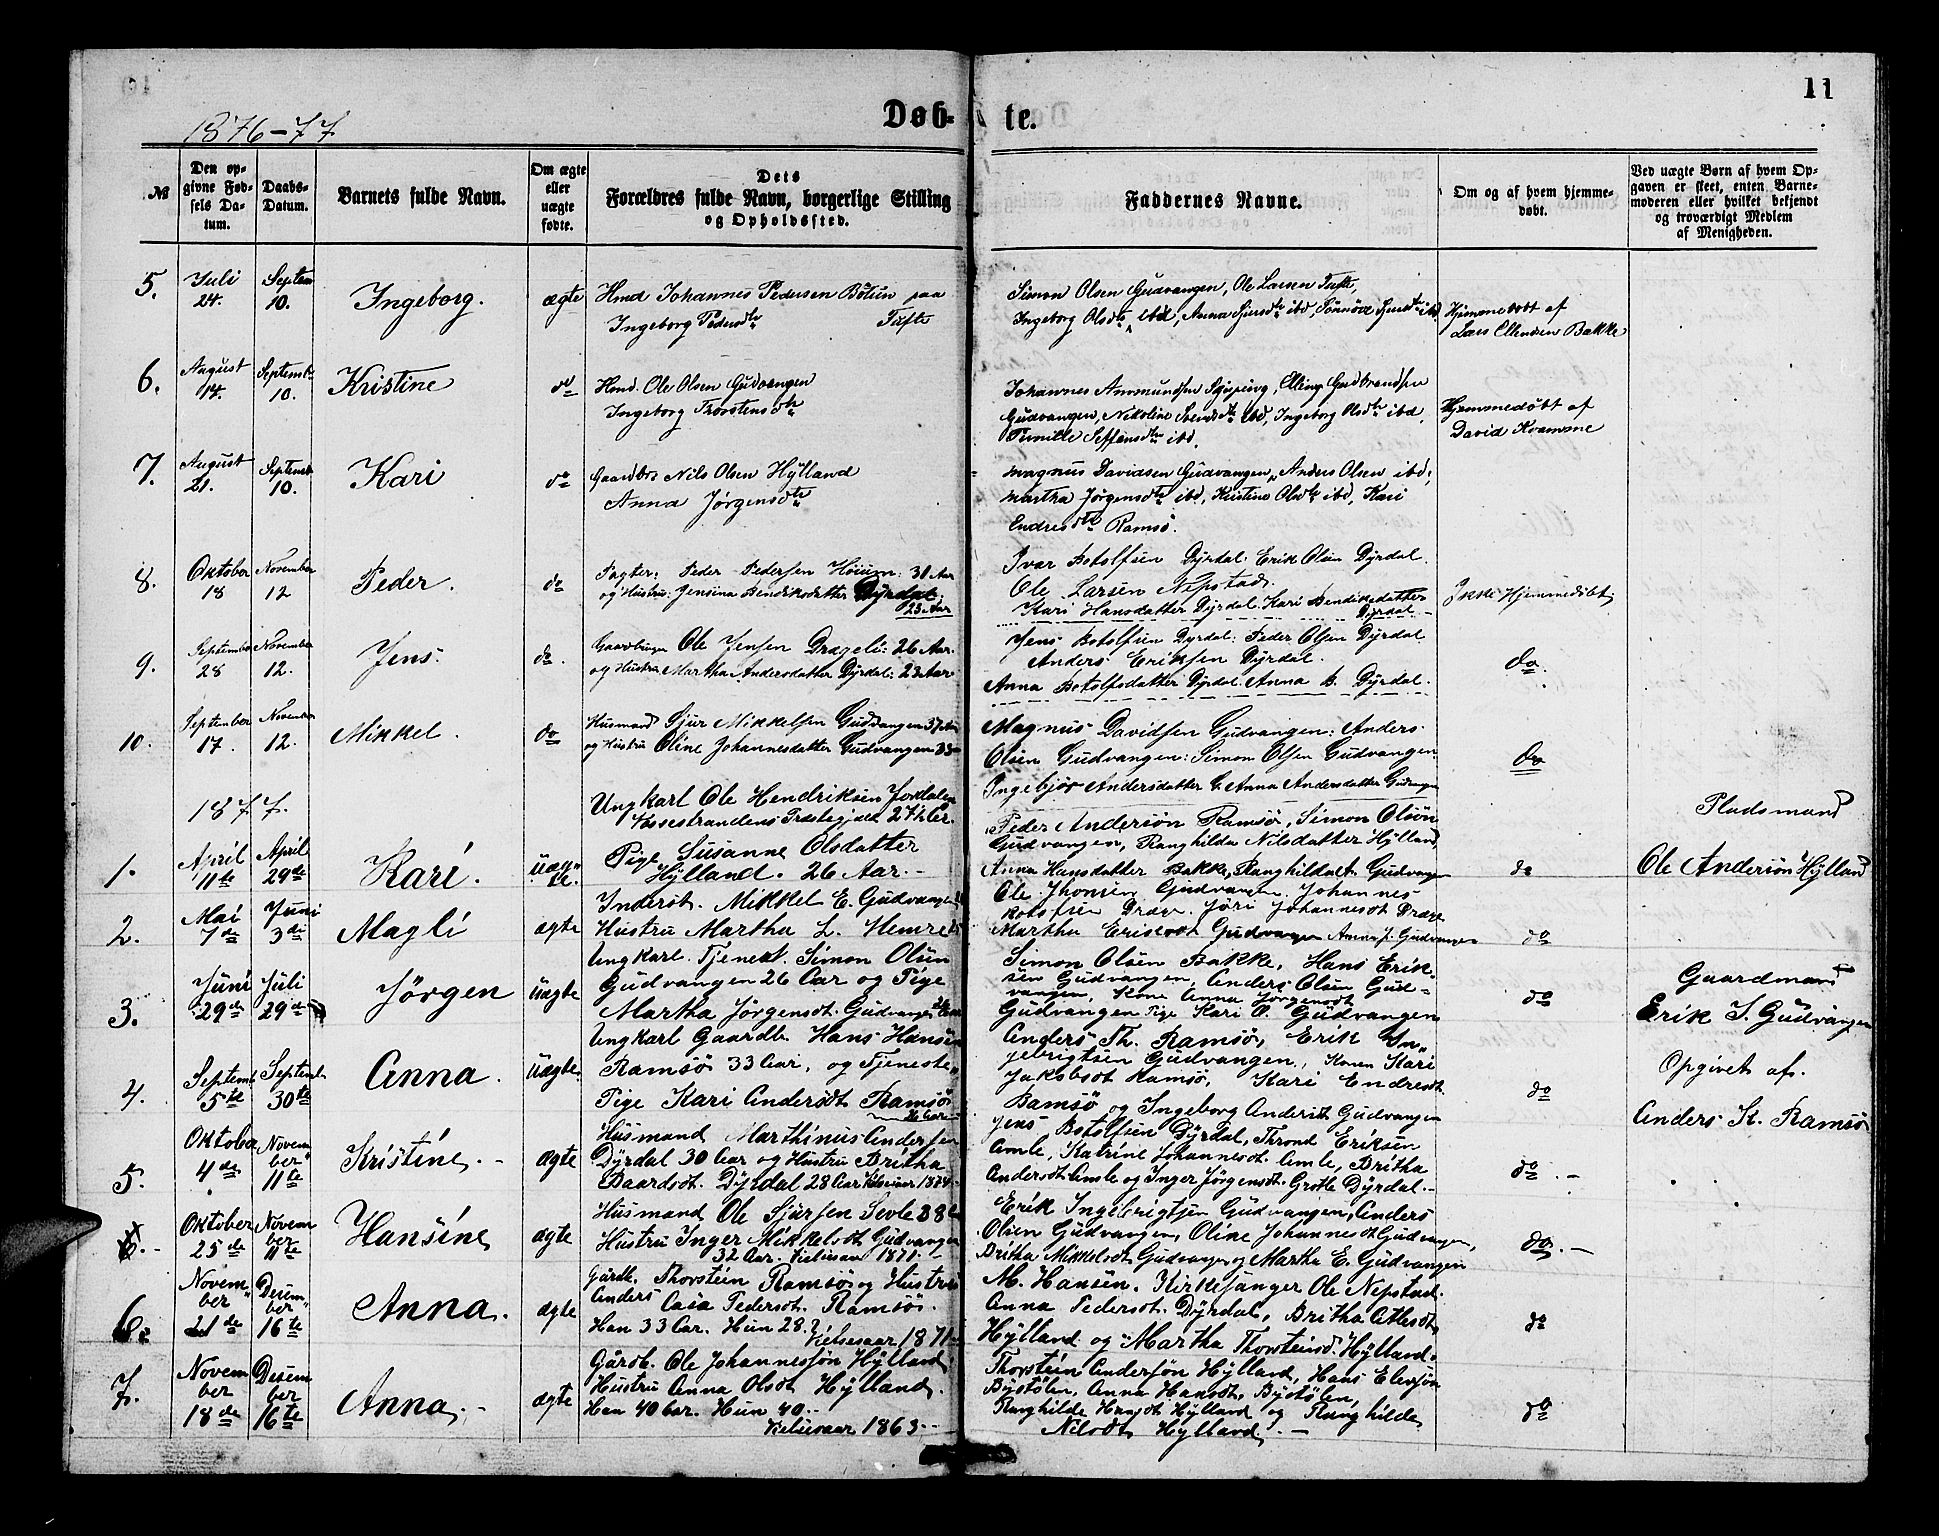 11
Døb- te.
1876-77
№
Den opgivne Fødsels Datum.
Daabs-Datum.
Barnets fulde Navn.
Om ægte eller uægte fødte.
Dets Forældres fulde Navn, borgerlige Stilling og Opholdssted.
Faddernes Navne.
Om og af hvem hjemmedøbt.
Ved uægte Børn af hvem Opgaven er skeet, enten Barnemoderen eller hvilket bekjendt og troværdigt Medlem af Menigheden.
5. Juli 24. Septem 10. Ingeborg. ægte
Hmd Johannes Pedersen Bøtun paa
Ingeborg Pedersdtr Tufte
Simon Olsen Gudvangen, Ole Larsen Tufte,
Ingeborg Olsdtr ibd, Anna Sjursdtr ibd, Sjursdtr ibd
Hjemmedøbt af
Lars Ellendsen Bakke
6. August 14. Septembr 10. Kristine do
Hmd. Ole Olsen Gudvangen
Ingeborg Thorstensdtr
Johannes Ammundsen Elling Gudbrandsen
Gudvangen, Nikoline ibd, Ingeborg Olsdtr ibd,
Pernille ibd.
Hjemmedøbt af
David Kvamme
7. August 21. Septembr 10. Kari do
Gaardbr Nils Olsen Hylland
Anna Jørgensdtr
Magnus Davidsen Gudvangen, Anders Olsen ibd,
Martha Jørgensdtr ibd, Kristine Olsdtr ibd, Kari
Endresdtr Ramsö.
8. Oktober 18 November 12 Peder. do
Pagter: Peder Pedersen Höium: 31 Aar
og Hustru: Jensina Bendiksdatter Dyrdal:
23 Aar
Ivar Botolfsen Dyrdal. Erik Olsen Dyrdal
Ole Larsen Nepstad.
Kari Hansdatter Dyrdal. Kari Bendiksdatter
Dyrdal.
Ikke Hjemmedöbt
9. September 28 November 12. Jens. do.
Gaardbruger Ole Jensen Drægeli: 26 Aar.
og Hustru Martha Andersdatter Dyrdal: 23 Aar
Jens Botolfsen Dyrdal: Peder Olsen Dyrdal
Anders Eriksen Dyrdal.
Anna Botolfsdatter Dyrdal. Anna B. Dyrdal.
do.
10. September 17. November 12. Mikkel. do
Husmand Sjur Mikkelsen Gudvangen 37 Aar
og Hustru Oline Johannesdatter Gudvangen 33
Magnus Davidsen Gudvangen: Anders
Olsen Gudvangen: Simon Olsen Gudvangen
Ingebjør Andersdatter G. Anna Andersdatter Gudvangen
do
1877.
1. April 11te April 29de Kari. uægte.
Ungkarl Ole Hendriksen Jordalen
Vossestrandens Præstegjæld 27½ Aar.
Pige Susanne Olsdatter
Hylland. 26 Aar.
Peder Andersön Ramsö, Simon Olsön
Gudvangen, Ranghilda Nilsdatter Hylland,
Anna Hansdatter Bakke, Ranghilda Gudvangen
do
Pladsmand
Ole Andersön Hylland
2. Mai 7de Juni 3di Magli ægte
Inderst. Mikkel E. Gudvangen
Hustru Martha L. Hemre
Ole Jhonsen Gudvangen Johannes
Botolfsen Dræge. Jöri Johannesdt Dræge
Martha Eriksdt Gudvangen Anna J. Gudvangen
do
3. Juni 29de Juli 29de Jörgen uægte
Ungkarl. Tjenest. Simon Olsen
Gudvangen 26 Aar og Pige
Martha Jörgensdt. Gudvangen
Simon Olsen Bakke, Hans Erik-
sen Gudvangen, Anders Olsen Gud-
vangen, Kone Anna Jörgensdt
Gudvangen Pige Kari O. Gudvangen
do
Gaardmand
Erik S. Gudvangen
4. Septemb 5te Septemb 30te Anna. uægte.
Ungkarl Gaardb. Hans Hansen
Ramsö 33 Aar, og Tjeneste
Pige Kari Andersdt Ramsö
26 Aar
Anders Th. Ramsö, Erik In-
gebrigtsen Gudvangen, Konen Kari
Jakobsdt Ramsö, Kari Endresdt.
Ramsö og Ingeborg Andersdt Gudvangen
do
Opgivet af.
Anders K. Ramsö
5. Oktober 4de November 11te Kristine. ægte
Husmand Marthinus Andersen
Dyrdal 30 Aar og Hustru Britha
Baardsdt. Dyrdal 28 Aar Vielsesaar 1874
Jens Botolfsen Dyrdal, Thrond Eriksen
Amle, Katrine Johannesdt. Amle, Britha
Andersdt Amle og Inger Jörgensdt. Grotle Dyrdal.
do.
6. Oktober 25de November 11te Hansine ægte
Husmand Ole Sjursen Sevle 38
Hustru Inger Mikkelsdt Gudvangen
32 Aar. Vielsesaar 1871.
Erik Ingebrigtsen Gudvangen, Anders
Olsen Gudvangen, Oline Johannesdt Gudvangen,
Britha Mikkelsdt Gudvangen og Martha E. Gudvangen
do.
6. November 21de Desember 16te Anna. ægte
Gårdb. Thorstein Ramsö og Hustru
Anders Pedersdt. Ramsö.
Han 33 Aar. Hun 28.
Vielsesaar 1871.
M. Hansen. Kirkesanger Ole Nepstad.
Anna Pedersdt. Dyrdal, Britha Atlesdt,
Hylland og Martha Thorsteinsd. Hylland.
do
7. November 18de Desember 16te Anna. ægte
Gårdb. Ole Johannessön Hylland,
Hustru Anna Olsdt Hylland.
Han 40 Aar. Hun 40.
Vielsesaar 1863
Thorstein Andersön Hylland, Hans Elevsön
Bystölen, Anna Hansdt. Bystölen,
Ranghilde Hansdt Hylland og Ranghilde
Nilsdt Hylland.
do